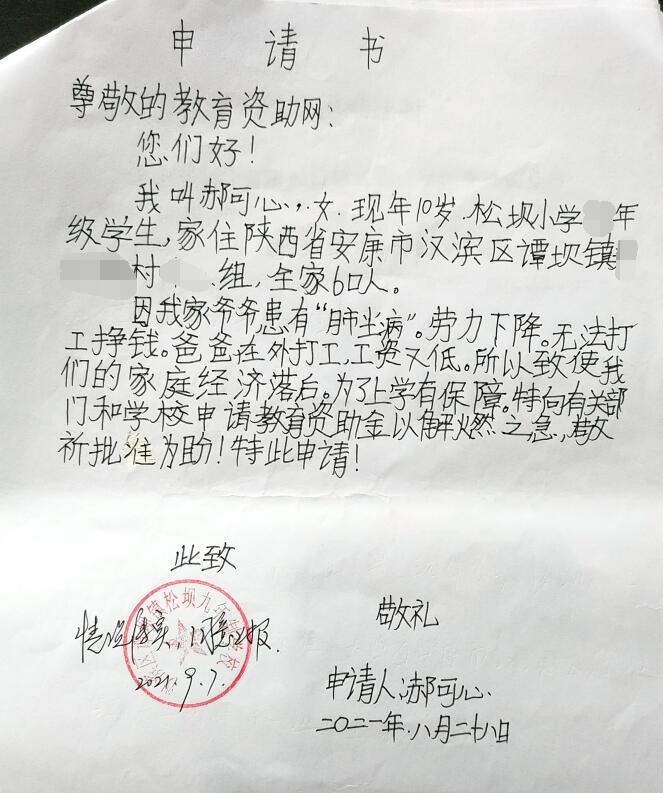 申请书
尊敬的教育资助网：
您们好！
我叫郝可心，女.现年10岁.松坝小学 年
级学生，家住陕西省安康市汉滨区谭坝镇
村 组，全家6口人。
因我家爷爷，患有“肺尘病”。劳力下降。无法打
工挣钱。爸爸在外打工，工资又低。所以致使我
们的家庭经济落后。为了上学有保障。特向有关部
门和学校申请教育资助金以解燃之急，敬
祈批准为助！特此申请！
此致
敬礼
镇松坝九年
情况属实，同意上报.
2021.9.7.
申请人：郝可心.
二〇二一年.八月二十八日